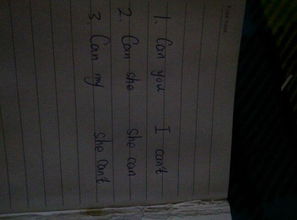 1. Can you I can't
2. Can she She can
3. Can my She can't